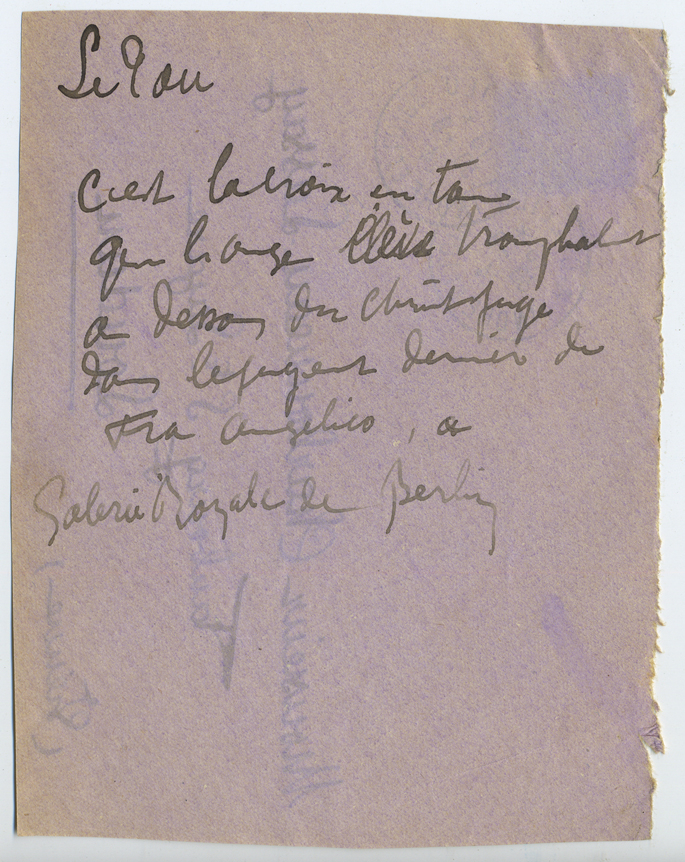 Le Tau
c'est la croix en tau
que l'ange élève triomphalt
au dessous du Christ juge
dans le jugement dernier de
Fra Angelico, a
Galerie Royale de Berlin